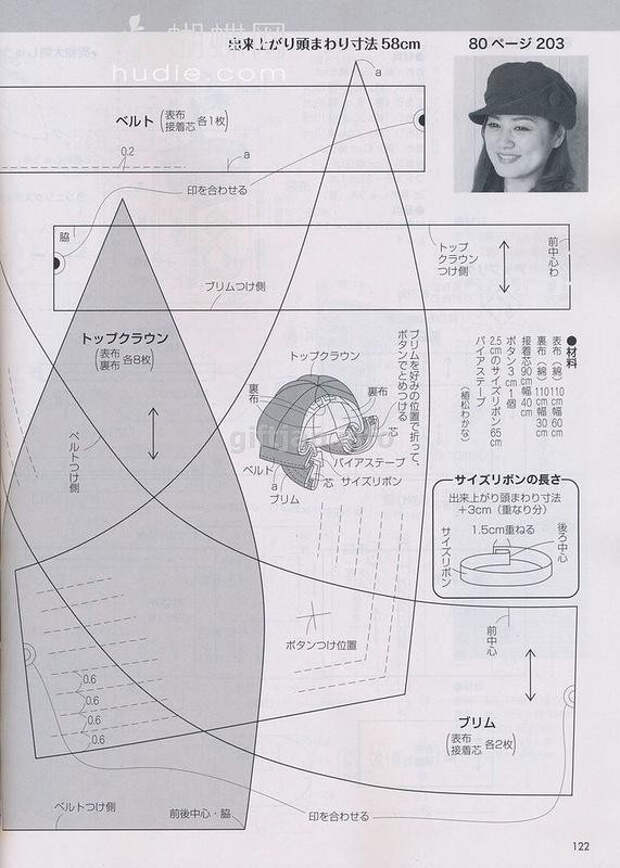 蝴蝶网
hudie.com
出来上がり頭まわり寸法58cm
80ページ203
a
ベルト(表布 接着芯 各1枚)
0.2
a
印を合わせる
脇
トップ
クラウン
つけ側
前中心わ
ブリムつけ側
トップクラウン
(表布 裏布 各8枚)
ベルトつけ側
ブリムを好みの位置で折って、
ボタンでとめつける
トップクラウン
裏布
裏布
芯
バイアステープ
ベルト
芯
サイズリボン
a
ブリム
●材料
表布(綿)110cm幅60cm
裏布(綿)110cm幅30cm
接着芯90cm幅40cm
ボタン3cm1個
2.5cmのサイズリボン65cm
バイアステープ
(植松わかな)
サイズリボンの長さ
出来上がり頭まわり寸法
+3cm(重なり分)
1.5cm重ねる
後ろ中心
サイズリボン
ボタンつけ位置
前中心
0.6
0.6
0.6
0.6
ブリム
(表布 接着芯 各2枚)
ベルトつけ側
前後中心・脇
印を合わせる
122